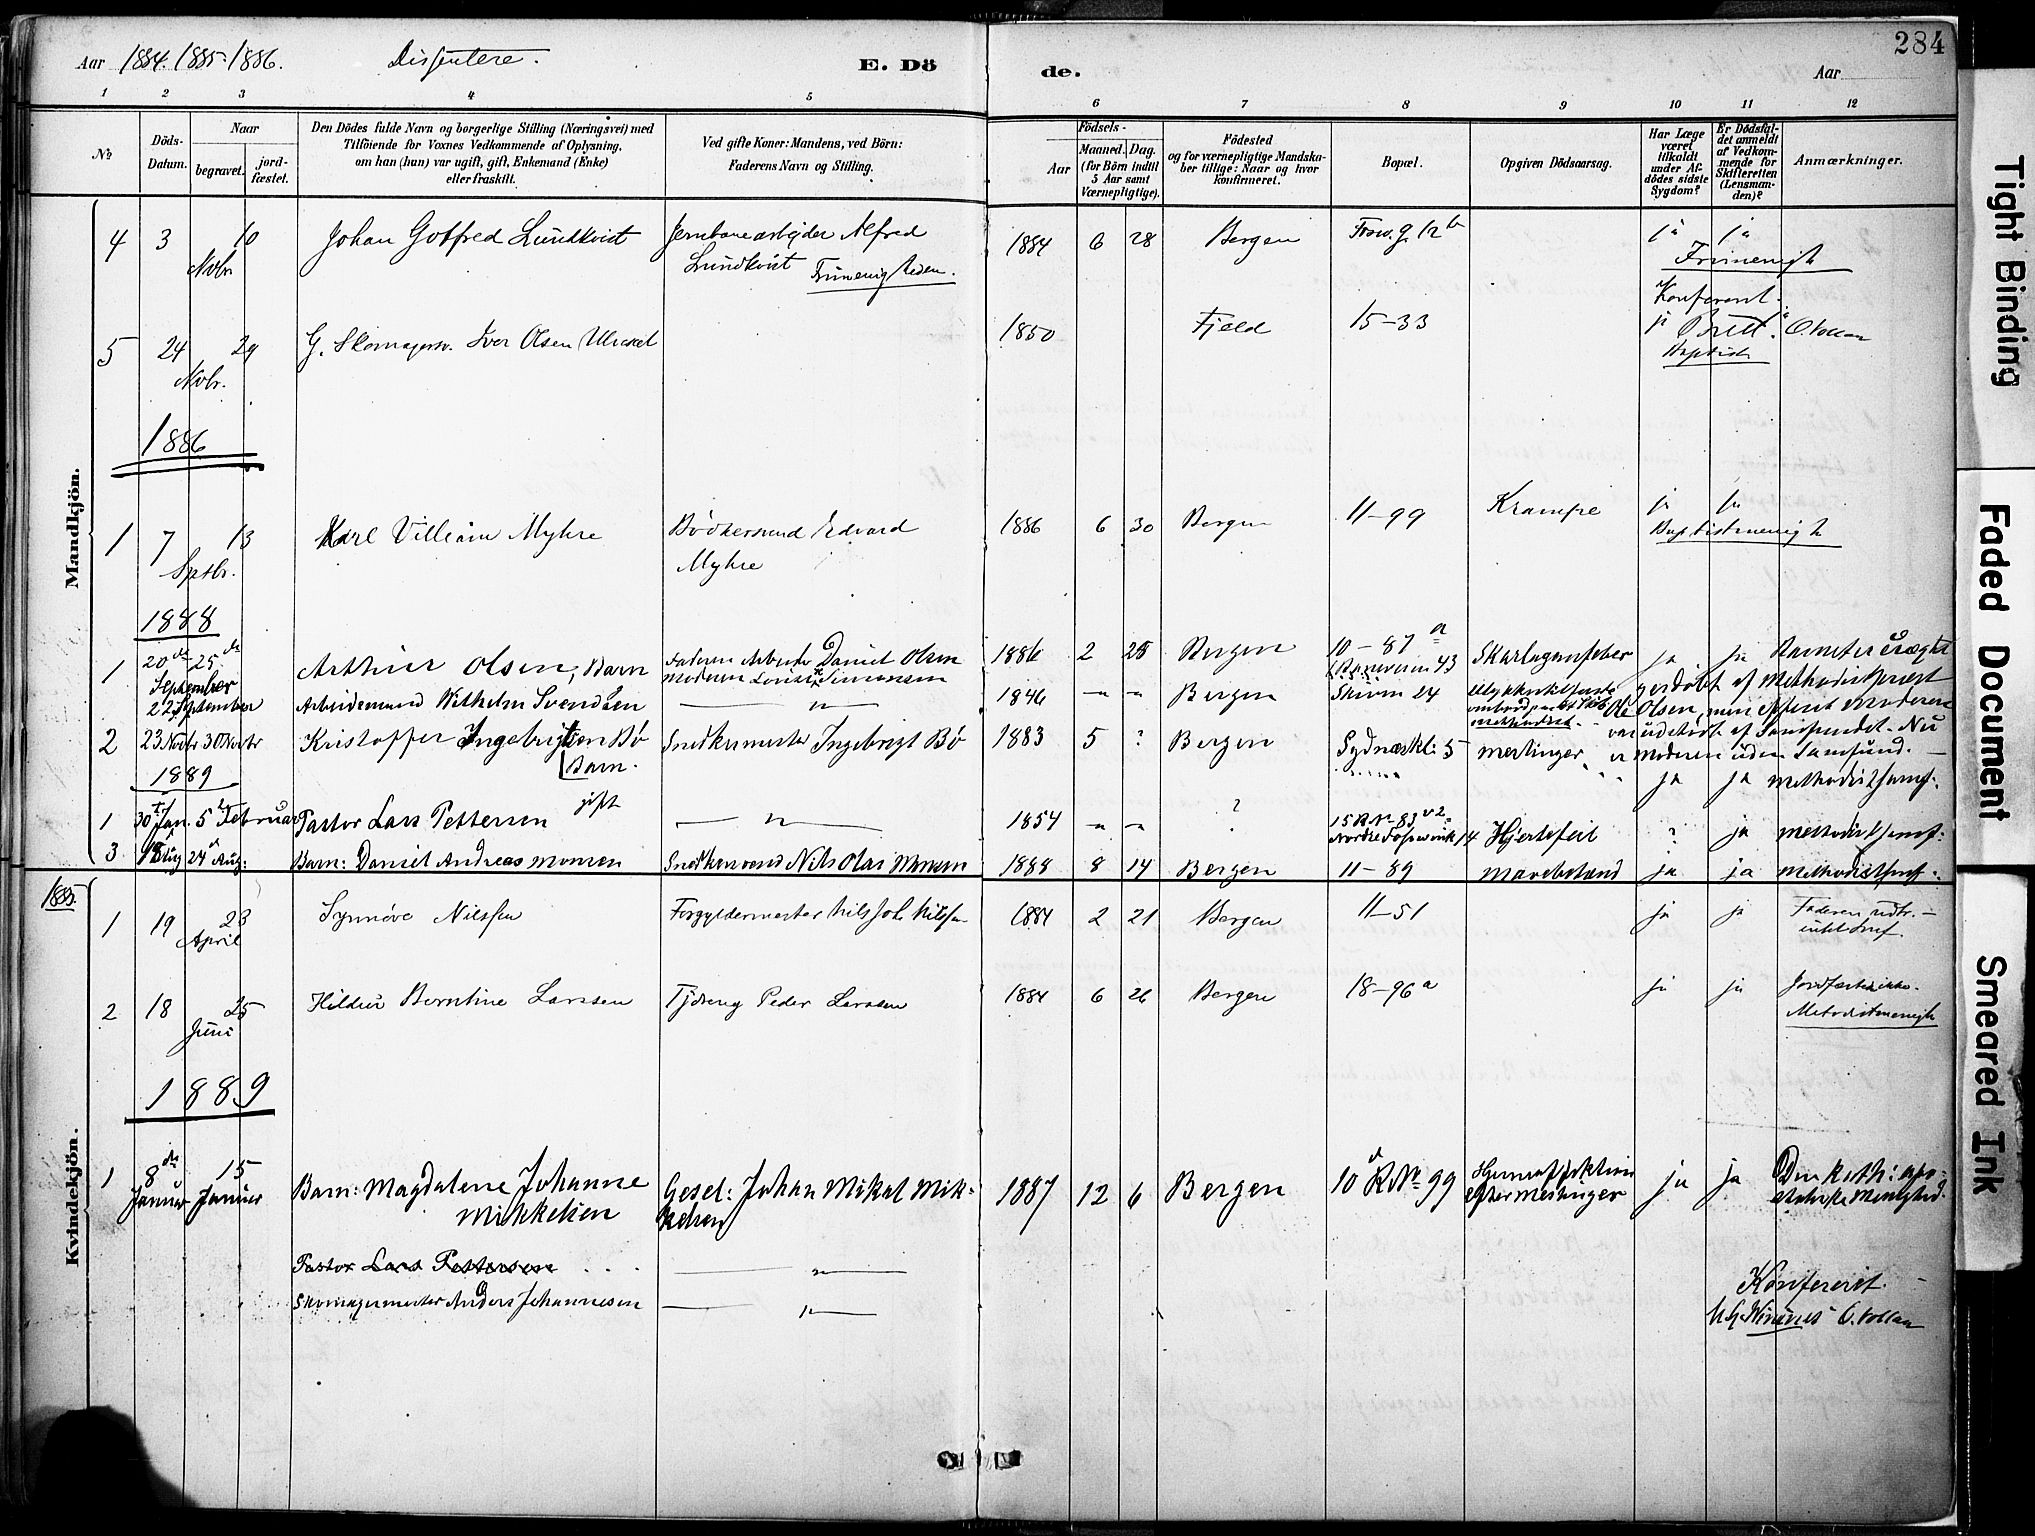 284
Aar 1884. 1885. 1886. Dissentere. E. Dö de. Aar
1 2 3 4 5 6 7 8 9 10 11 12
№
Döds-Datum.
Naar
begravet.
jord-fæstet.
Den Dödes fulde Navn og borgerlige Stilling (Næringsvei) med
Tilföiende for Voxnes Vedkommende af Oplysning,
om han (hun) var ugift, gift, Enkemand (Enke)
eller fraskilt.
Ved gifte Koner: Mandens, ved Börn:
Faderens Navn og Stilling.
Födsels-
Aar
Maaned. Dag.
(for Börn indtil
5 Aar samt
Værnepligtige).
Födested
og for værnepligtige Mandska-
ber tillige: Naar og hvor
konfirmeret.
Bopæl.
Opgiven Dödsaarsag.
Har Læge
været
tilkaldt
under Af-
dödes sidste
Sygdom?
Er Dödsfal-
det anmeldt
af Vedkom-
mende for
Skifteretten
(Lensman-
den)?
Anmærkninger.
Mandkjön.
4 3 10 Johan Gotfred Lundkvist Jernbanearbejder Alfred 1884 6 28 Bergen ja ja
Nvbr. Lundkvist Frimenigheden. Frimenigh
Konferert
5 24 29 G. Skomagersv. Iver Olsen 1850 Fjeld 15-33 ja Britt. O. Vollan
Nvbr. Baptist
1886
1 7 13 Karl Villiam Myhre Bödkersvend Edvard 1886 6 30 Bergen 11-99 Krampe ja ja
Sptbr. Myhre Baptistmenigh
1888
1 20de 25de Arthur Olsen, Barn Faderen Arbeider Daniel Olsen 1886 2 25 Bergen 10-87a Skarlagensfeber ja ja Barnet er
September Moderen Lovise Simonsen 43 gjendöbt af Methodistpræst
22 September Arbeidsmand Wilhelm Svendsen — " — 1846 " " Bergen Skiven 24 Ole Olsen, men Moderen
var udtraadt af Samfundet. Nu
2 23 Novbr 30 Novbr Kristoffer Ingebrigtsen Bö Snedkermester Ingebrigt Bö 1883 5 ? Bergen Sydneskl: 5 meslinger er Moderen uden Samfund.
Barn. ja ja methodistsamf.
1889
gift
1 30te Jan. 5te Februar Pastor Lars Pettersen — " — 1854 " " ? 15 R No 83 v 2 Hjertefeil ? ja methodistsamf.
3 18 Aug 24 Aug: Barn: Daniel Andreas Monsen Snedkersvend Nils Olai Monsen 1888 8 14 Bergen 11-89 mavebetænd ja ja methodistsamf.
Kvindekjön.
1885
1 19 23 Synnöve Nilssen Forgyldermester Nils Joh. Nilsen 1884 2 21 Bergen 11-51 ja ja Faderen udtr. -
April
2 18 25 Hildur Berntine Larssen Peder Larssen 1884 6 26 Bergen 18-96a ja ja Jordfæstet ikke.
Juni Metodistmenigh
1889
1 8de 15 Barn: Magdalene Johanne Gesel: Johan Mikal Mik- 1887 12 6 Bergen 10d R No 99 ja ja Den kath: apo-
Januar Januar Mikkelsen kelsen efter meslinger stolske Menighed.
Pastor Lars Pettersen — " —
Skomagermester Anders Johannesen — " —
Konfereret
O. Vollan
Tight Binding
Faded Document
Smeared Ink